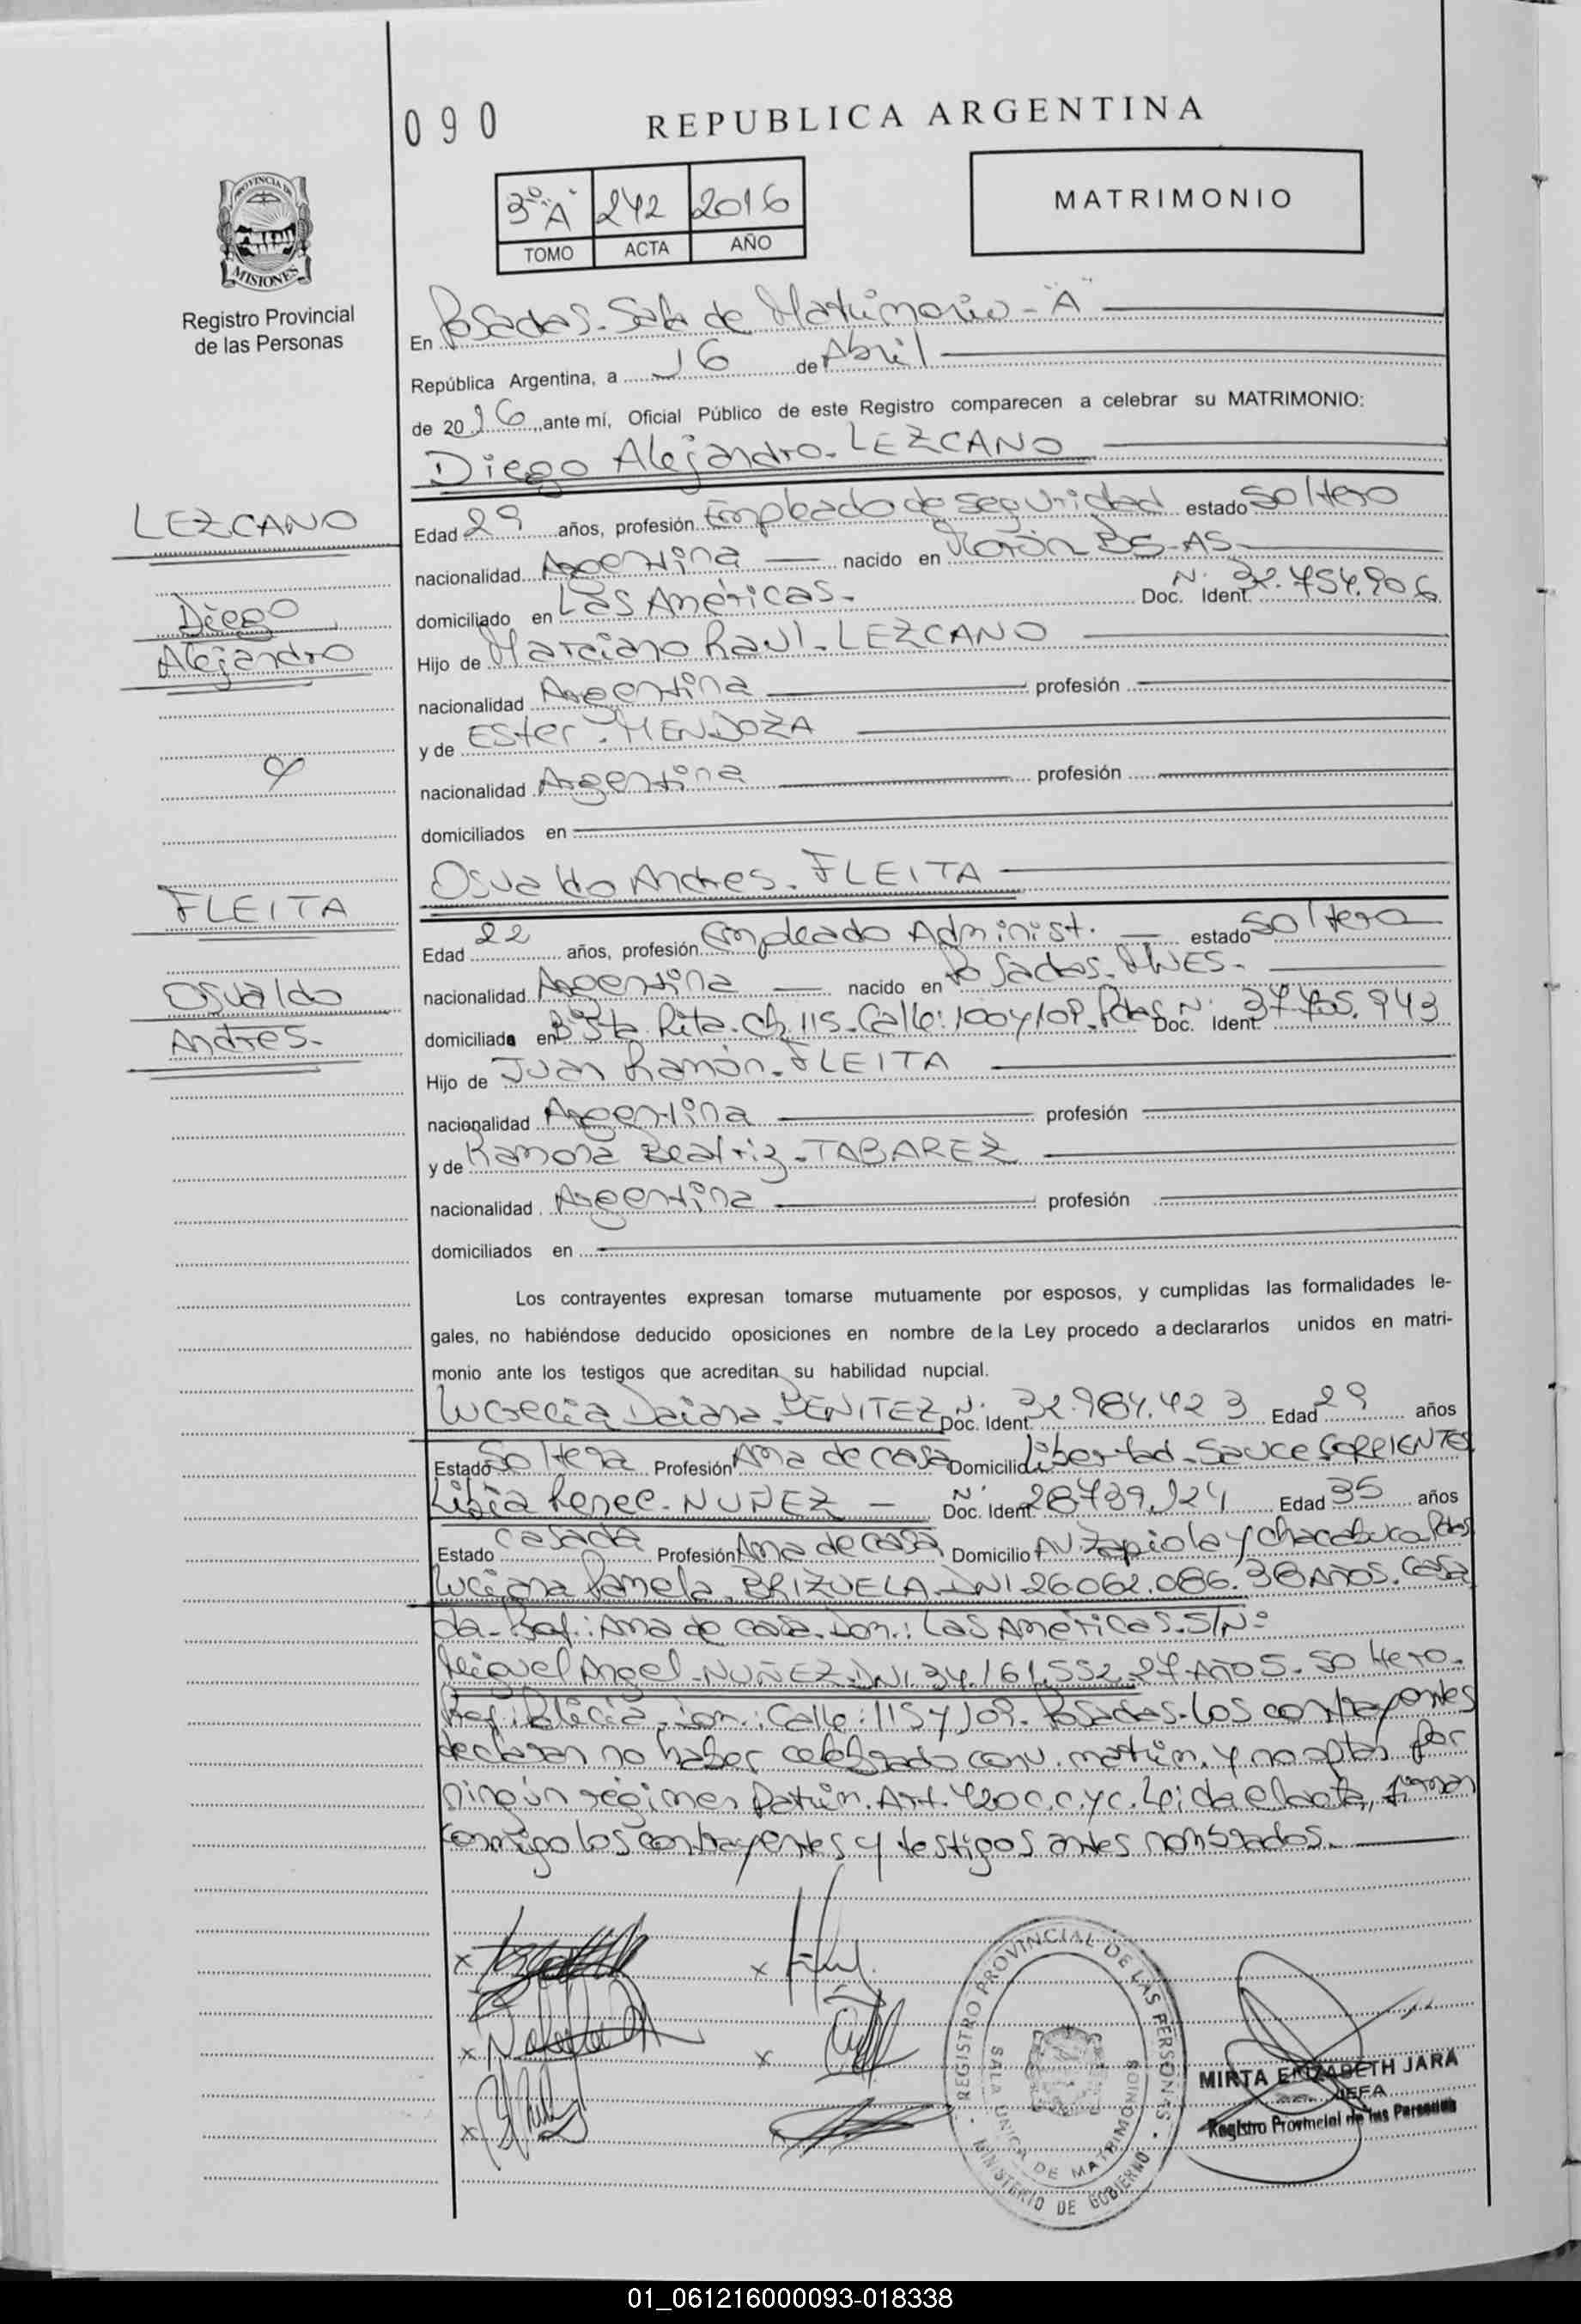 090
REPUBLICA ARGENTINA
3º "A" 242 2016
TOMO ACTA AÑO
MATRIMONIO
PROVINCIA DE
MISIONES
Registro Provincial
de las Personas
En Posadas - Sala de Matrimonio - "A"
República Argentina, a 16 de Abril
de 2016, ante mí, Oficial Público de este Registro comparecen a celebrar su MATRIMONIO:
Diego Alejandro - LEZCANO
LEZCANO
Diego
Alejandro
y
FLEITA
Osvaldo
Andres -
Edad 29 años, profesión Empleado de seguridad estado soltero
nacionalidad Argentina nacido en Morón BS-AS
domiciliado en Las Américas. Doc. Ident. N. 32.754.906
Hijo de Marciano Raul - LEZCANO
nacionalidad Argentina profesión
y de Ester - MENDOZA
nacionalidad Argentina profesión
domiciliados en
Osvaldo Andres - FLEITA
Edad 22 años, profesión Empleado Administ. estado soltero
nacionalidad Argentina nacido en Posadas - MNES -
domiciliado en B° Sta Rita - Ch 115 - Calle: 100 y 109 - Pdas Doc. Ident. N. 943
Hijo de Juan Ramón - FLEITA
nacionalidad Argentina profesión
y de Ramona Beatriz - TABAREZ
nacionalidad Argentina profesión
domiciliados en
Los contrayentes expresan tomarse mutuamente por esposos, y cumplidas las formalidades le-
gales, no habiéndose deducido oposiciones en nombre de la Ley procedo a declararlos unidos en matri-
monio ante los testigos que acreditan su habilidad nupcial.
Lucrecia Daiana - BENITEZ Doc. Ident. N. 32.984.423 Edad 29 años
Estado Soltera Profesión Ama de casa Domicilio Libertad - Sauce CORRIENTES
Libia Renee - NUÑEZ - Doc. Ident. N. 28.739.124 Edad 35 años
Estado casada Profesión Ama de casa Domicilio AV. Zapiola y Chacabuco Pdas
Luciana Pamela - BRIZUELA - DNI 26.062.086 - 38 AÑOS - Casa
da - Prof.: Ama de casa - Dom.: Las Américas - S/N -
Miguel Angel - NUÑEZ - DNI 34.161.552 - 27 AÑOS - Soltero -
Prof: Policia - Dom.: Calle: 115 y 109 - Posadas - Los contrayentes
declaran no haber celebrado conv. matrim. y no optan por
ningún régimen Patrim. Art. 420 C.C. y C. Leida el acta, firman
conmigo los contrayentes y testigos antes nombrados.
REGISTRO PROVINCIAL DE LAS PERSONAS
SALA UNICA DE MATRIMONIOS
MINISTERIO DE GOBIERNO
MIRTA ELIZABETH JARA
JEFA
Registro Provincial de las Personas
01_061216000093-018338